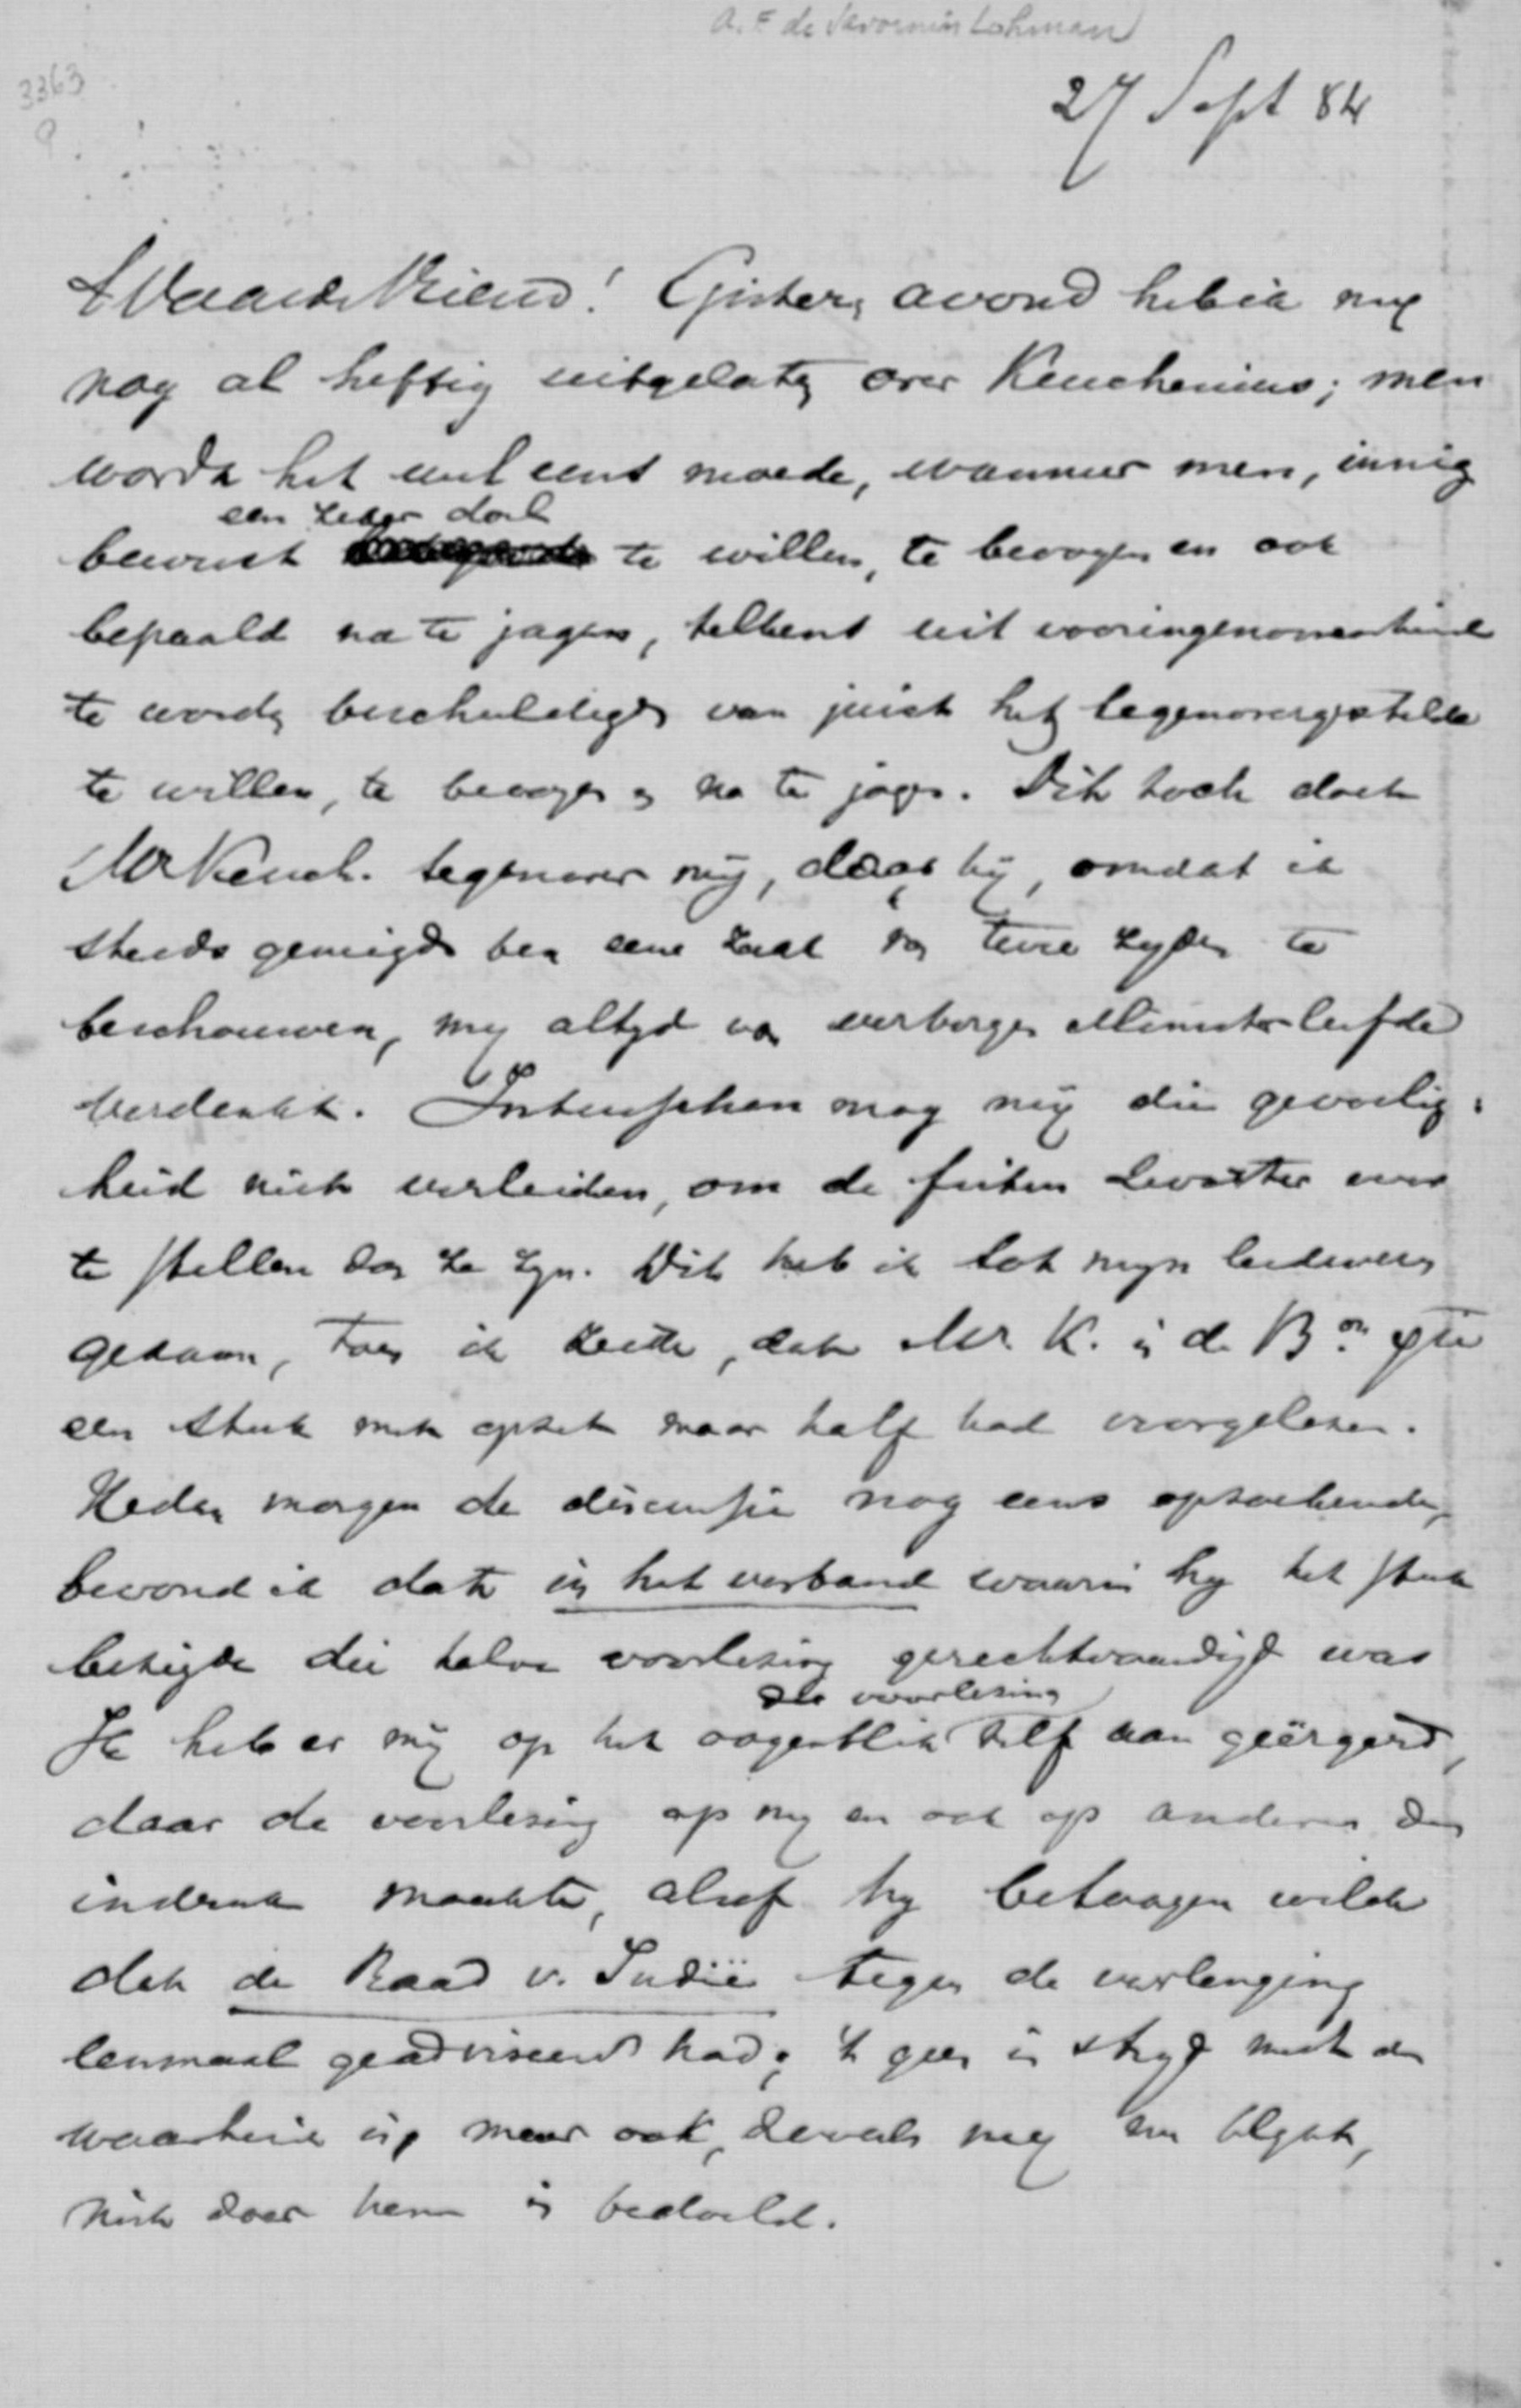 A. F de Savornin Lohman
3363
9
27 Sept 84
Waarde Vriend! Gister avond heb ik my
nog al heftig uitgelaten over Keuchenius; men
wordt het wel eens moede, wanneer men, innig
een zeker doel
bewust te willen, te beoogen en ook
bepaald na te jagen, telkens uit vooringenomenheid
te worden beschuldigd van juist het tegenovergestelde
te willen, te beoogen en na te jagen. Dit toch doet
Mr Keuch. tegenover mij, daar hij, omdat ik
steeds geneigd ben eene zaak van twee zyden te
beschouwen, my altyd van verborgen Ministerliefde
verdenkt. Intusschen mag mij die gevoelig-
heid niet verleiden, om de feiten zwarter voor
te stellen dan ze zyn. Dit heb ik tot myn leedwezen
gedaan, toen ik zeide, dat Mr. K. in de
een stuk met opzet maar half had voorgelezen.
Heden morgen de discussie nog eens opzoekende,
bevond ik dat in het verband waarin hy het stuk
bezigde die halve voorlezing gerechtvaardigd was
de voorlezing
Ik heb er mij op het oogenblik zelf aan geërgerd,
daar de voorlezing op my en ook op anderen den
indruk maakte, alsof hy betoogen wilde
dat de Raad v. Indië tegen de verlenging
eenmaal geadviseerd had; 't geen in stryd met de
waarheid is, maar ook, zooals my nu blykt,
niet door hem is bedoeld.